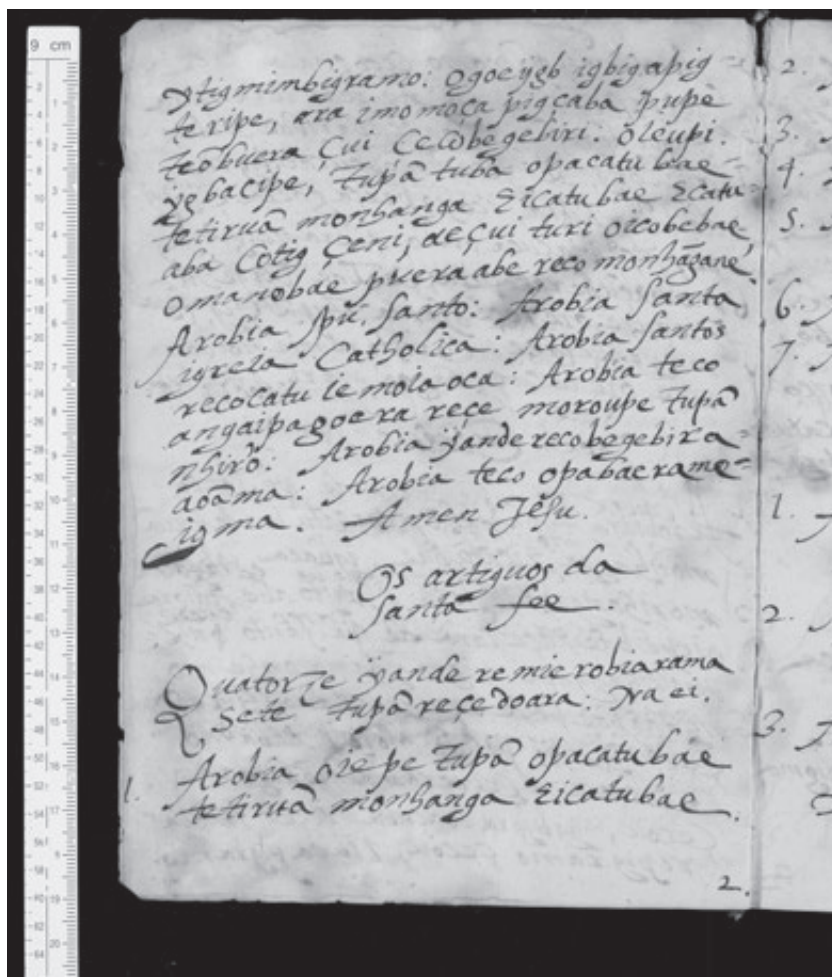 ytigmimbigramo: ogoeygb igbigapig-
teripe, ara imomoça pigçaba pupè
teõbuera çui cecobegebiri. oieupi.
ygbacipe, Tupã tuba opacatubae-
tetiruã monhanga Eicatubae Ecatu-
aba cotig çeni, aeçui turi oicobebae
omanobae puera abe reco monhãgane
Arobia Spũ. Santo: Arobia Santa
igreia Catholica: Arobia Santos
recocatu iemoiaoca: Arobia teco
angaipagoera reçe moroupe Tupã
nhirõ: Arobia yande recobegebira
aoãma: Arobia teco opabaerame=
igma. Amen Jesu.
Os artiguos da
Santa fee.
Quatorze yande remierobiarama
Sete Tupã reçedoara: Na ei.
1. Arobia oiepe Tupã opacatubae
tetiruã monhanga Eicatubae.
2.
2.
3.
4.
5.
6.
7.
1.
2.
3.
9 cm